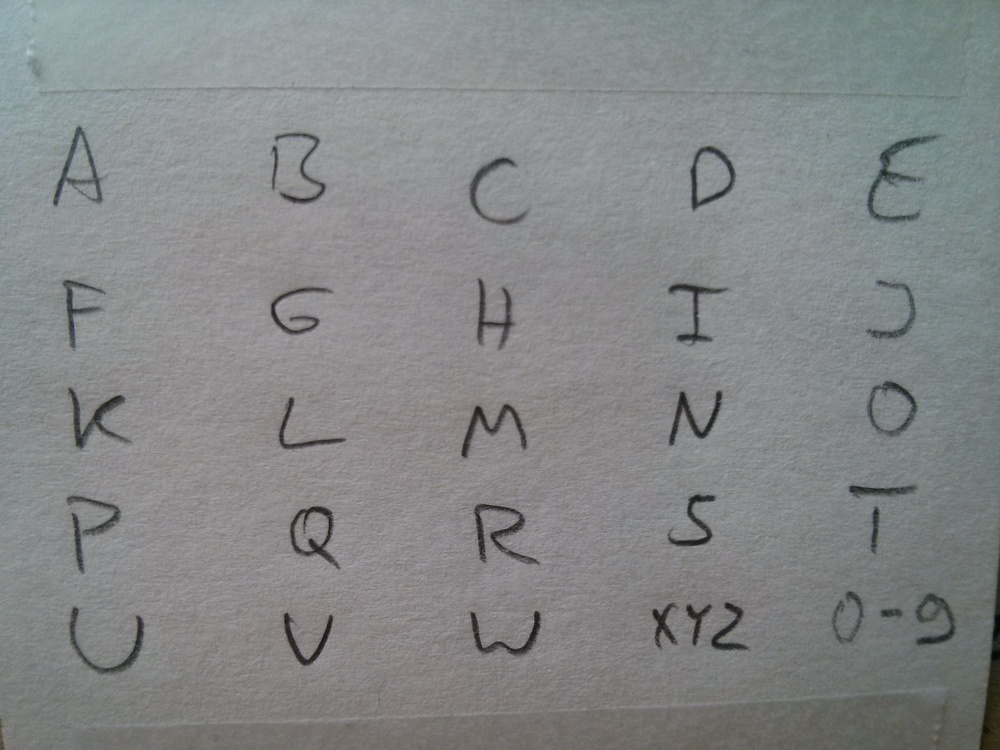 A B C D E
F G H I J
K L M N O
P Q R S T
U V W XYZ 0-9